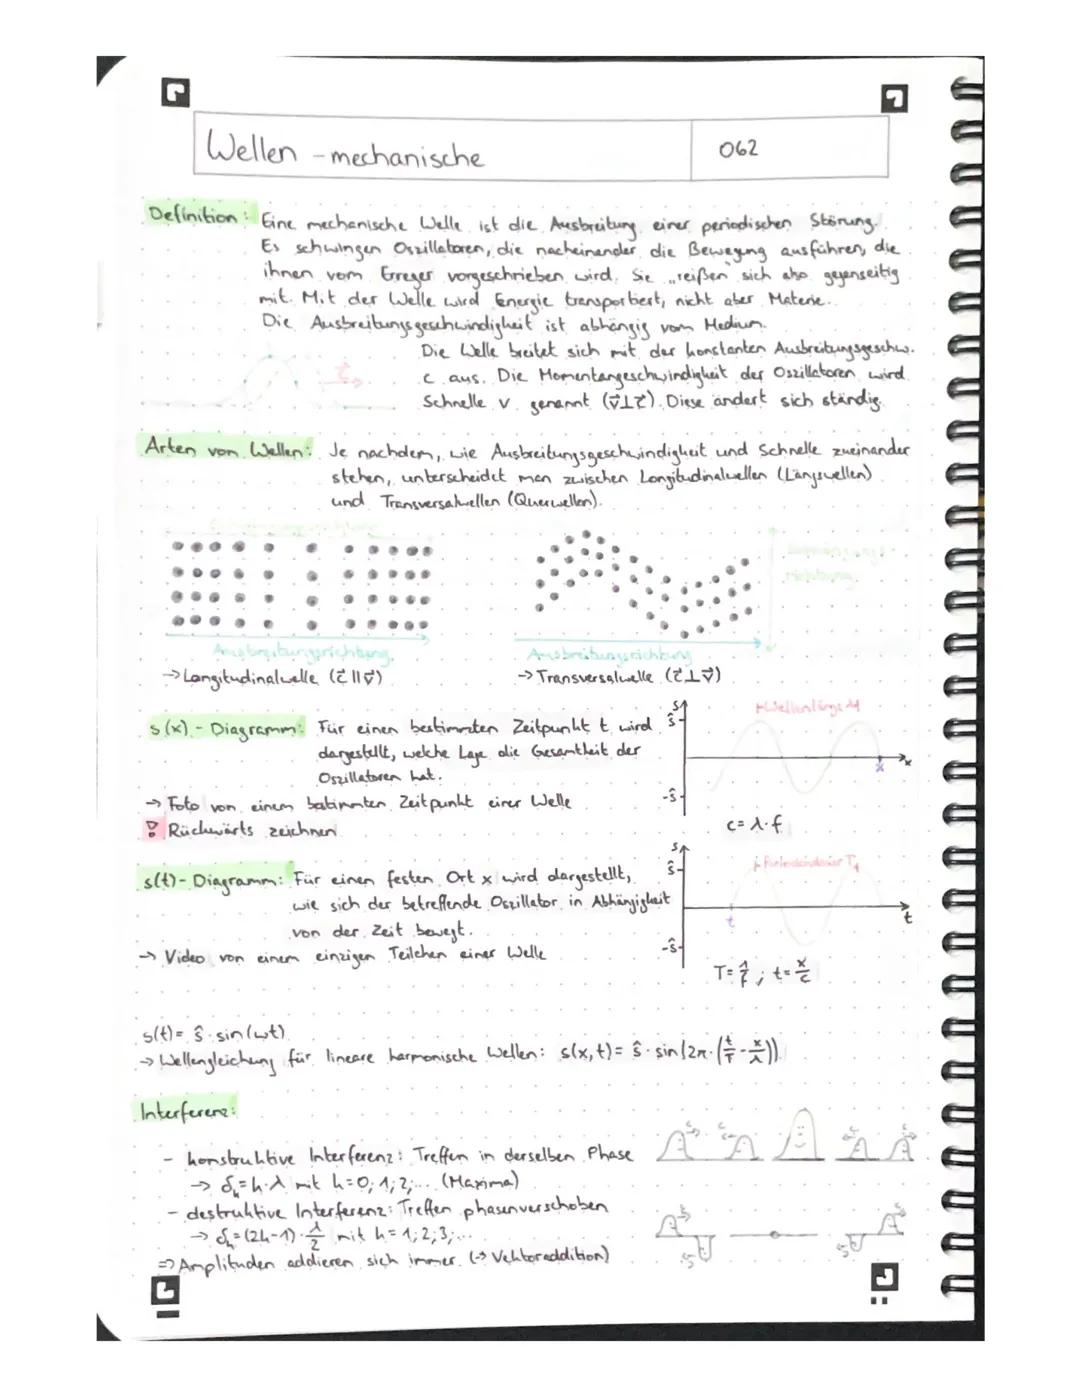 Wellen - mechanische
062
Definition: Eine mechanische Welle ist die Ausbreitung einer periodischen Störung.
Es schwingen Oszillatoren, die nacheinander die Bewegung ausführen, die
ihnen vom Erreger vorgeschrieben wird. Sie „reißen" sich also gegenseitig
mit. Mit der Welle wird Energie transportiert, nicht aber Materie.
Die Ausbreitungsgeschwindigkeit ist abhängig vom Medium.
Die Welle breitet sich mit der konstanten Ausbreitungsgeschw.
c aus. Die Momentangeschwindigkeit der Oszillatoren wird
Schnelle v genannt (v⃗⊥c⃗). Diese ändert sich ständig.
c⃗
Arten von Wellen: Je nachdem, wie Ausbreitungsgeschwindigkeit und Schnelle zueinander
stehen, unterscheidet man zwischen Longitudinalwellen (Längswellen)
und Transversalwellen (Querwellen).
Schwingungsrichtung
Schwingungs-
richtung
Ausbreitungsrichtung
Ausbreitungsrichtung
→ Longitudinalwelle (c⃗ || v⃗)
→ Transversalwelle (c⃗⊥v⃗)
s(x) - Diagramm: Für einen bestimmten Zeitpunkt t wird
dargestellt, welche Lage die Gesamtheit der
Oszillatoren hat.
→ Foto von einem bestimmten Zeitpunkt einer Welle
! Rückwärts zeichnen
s
ŝ
-ŝ
Wellenlänge λ
x
x
c = λ·f
s(t) - Diagramm: Für einen festen Ort x wird dargestellt,
wie sich der betreffende Oszillator in Abhängigkeit
von der Zeit bewegt.
→ Video von einem einzigen Teilchen einer Welle
s
ŝ
-ŝ
Periodendauer T
t
t
T = 1/f ; t = x/c
s(t) = ŝ · sin(ωt)
→ Wellengleichung für lineare harmonische Wellen: s(x,t) = ŝ · sin(2π·(t/T - x/λ))
Interferenz:
- konstruktive Interferenz: Treffen in derselben Phase
→ δₖ = k·λ mit k = 0; 1; 2; ... (Maxima)
- destruktive Interferenz: Treffen phasenverschoben
→ δₖ = (2k-1)·λ/2 mit k = 1; 2; 3; ...
⇒ Amplituden addieren sich immer (→ Vektoraddition)